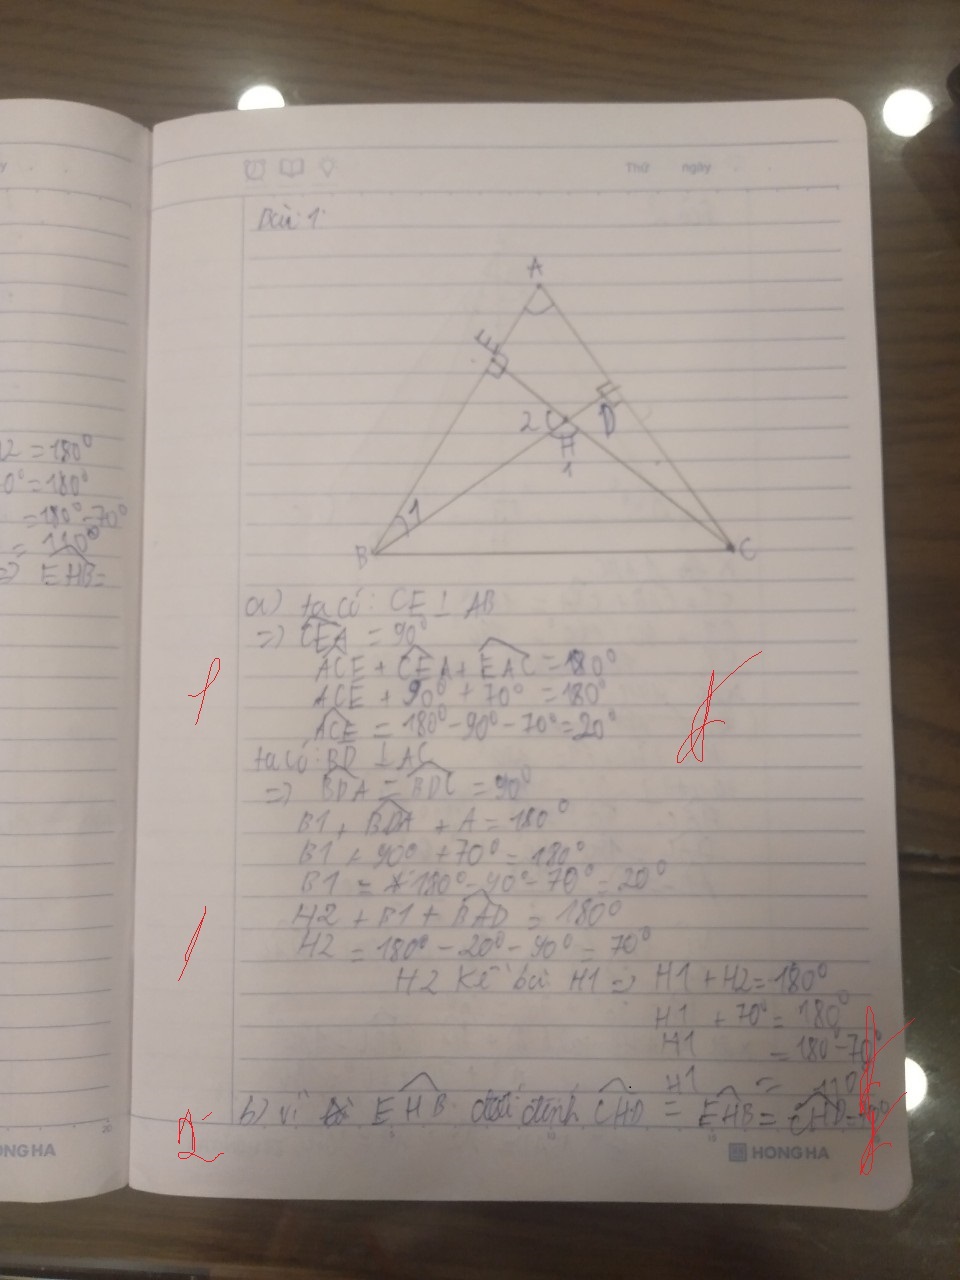 2 = 180°
0° = 180°
= 180° - 70°
= 110°
=> EHB =
Thứ ngày
Bài 1:
A
E
2 D
H
1
1
B C
a) ta có: CE ⊥ AB
=> CEA = 90°
ACE + CEA + EAC = 180°
ACE + 90° + 70° = 180°
ACE = 180° - 90° - 70° = 20°
ta có: BD ⊥ AC
=> BDA = BDC = 90°
B1 + BDA + A = 180°
B1 + 90° + 70° = 180°
B1 = 180° - 90° - 70° = 20°
H2 + B1 + = 180°
H2 = 180° - 20° - 90° = 70°
H2 kề bù H1 => H1 + H2 = 180°
H1 + 70° = 180°
H1 = 180° - 70°
H1 =
b) vì EHB đối đỉnh CHD = EHB = CHD
20 5 10 15
ONG HA HONG HA